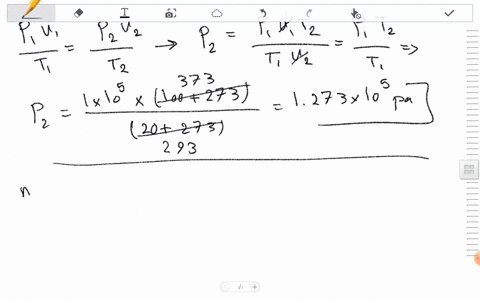 P₁V₁/T₁ = P₂V₂/T₂ → P₂ = P₁V₁T₂/T₁V₂ = P₁T₂/T₁ ⇒
P₂ = 1×10⁵ × (100+273) 373 / (20+273) 293 = 1.273×10⁵ pa
n